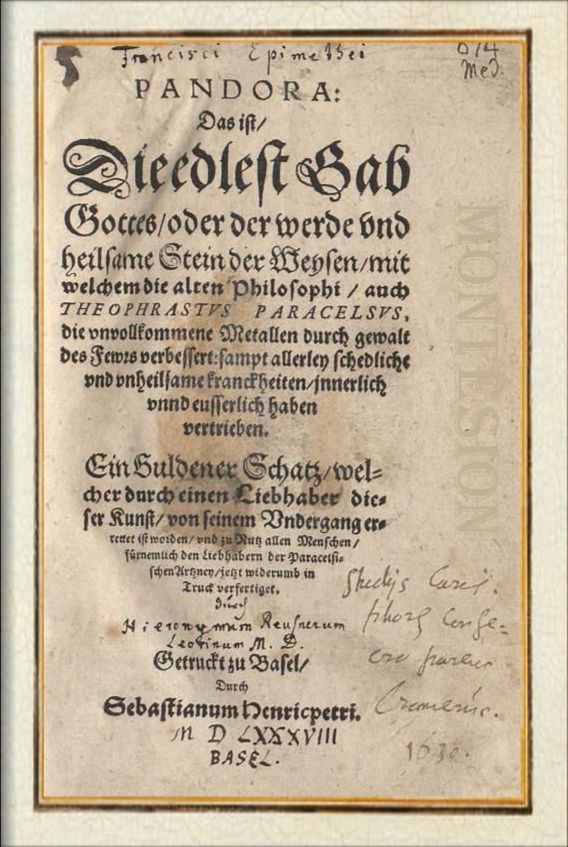 Francisci Epimethei
614
Med.
PANDORA:
Das ist/
Die edlest Gab
Gottes/oder der werde vnd
heilsame Stein der Weysen/mit
welchem die alten Philosophi / auch
THEOPHRASTVS PARACELSVS,
die vnvollkommene Metallen durch gewalt
des Fewrs verbessert: sampt allerley schedliche
vnd vnheilsame kranckheiten/jnnerlich
vnnd eusserlich haben
vertrieben.
Ein Guldener Schatz/wel-
cher durch einen Liebhaber die-
ser Kunst/von seinem Vndergang er-
rettet ist worden/vnd zu Nutz allen Menschen/
fürnemlich den Liebhabern der Paracelsi-
schen Artzney/jetzt widerumb in
Truck verfertiget.
durch
Hieronymum Reusnerum
Leorinum M. D.
Getruckt zu Basel/
Durch
Sebastianum Henricpetri.
M D LXXXVIII
BASEL.
1630.
MONTESION